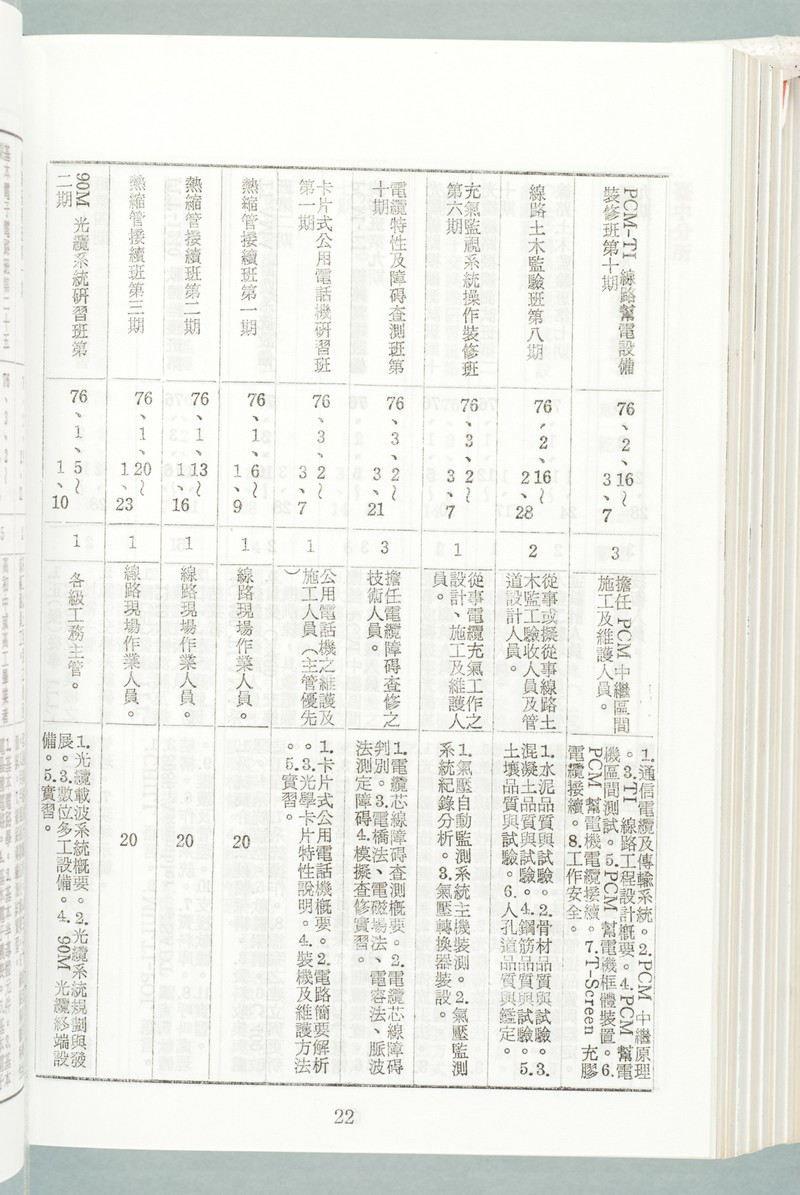 PCM-TI 線路幫電設備
裝修班第十期
76、2、16～
3、7
3
擔任 PCM 中繼區間
施工及維護人員。
1.通信電纜及傳輸系統。2.PCM 中繼原理
。3.TI 線路工程設計概要。4.PCM 幫電
機區間測試。5.PCM 幫電機框體裝置。6.
PCM 幫電機電纜接續。7.T-Screen 充膠
電纜接續。8.工作安全。
線路土木監驗班第八期
76、2、16～
2、28
2
從事或擬從事線路土
木監工驗收人員及管
道設計人員。
1.水泥品質與試驗。2.骨材品質與試驗。3.
混凝土品質與試驗。4.鋼筋品質與試驗。5.
土壤品質與試驗。6.人孔道品質與鑑定。
充氣監視系統操作裝修班
第六期
76、3、2～
3、7
1
從事電纜充氣工作之
設計、施工及維護人
員。
1.氣壓自動監測系統主機裝測。2.氣壓監測
系統紀錄分析。3.氣壓轉換器裝設。
電纜特性及障碍查測班第
十期
76、3、2～
3、21
3
擔任電纜障碍查修之
技術人員。
1.電纜芯線障碍查測概要。2.電纜芯線障碍
判別。3.電橋法、電磁場法、電容法、脈波
法測定障碍4.模擬查修實習。
卡片式公用電話機研習班
第一期
76、3、2～
3、7
1
公用電話機之維護及
施工人員（主管優先
）
1.卡片式公用電話機概要。2.電路簡要解析
。3.光學卡片特性說明。4.裝機及維護方法
。5.實習。
熱縮管接續班第一期
76、1、6～
1、9
1
線路現場作業人員。
20
熱縮管接續班第二期
76、1、13～
1、16
1
線路現場作業人員。
20
熱縮管接續班第三期
76、1、20～
1、23
1
線路現場作業人員。
20
90M 光纜系統研習班第
二期
76、1、5～
1、10
1
各級工務主管。
1.光纜載波系統概要。2.光纜系統規劃與發
展。3.數位多工設備。4. 90M 光纜終端設
備。5.實習。
22